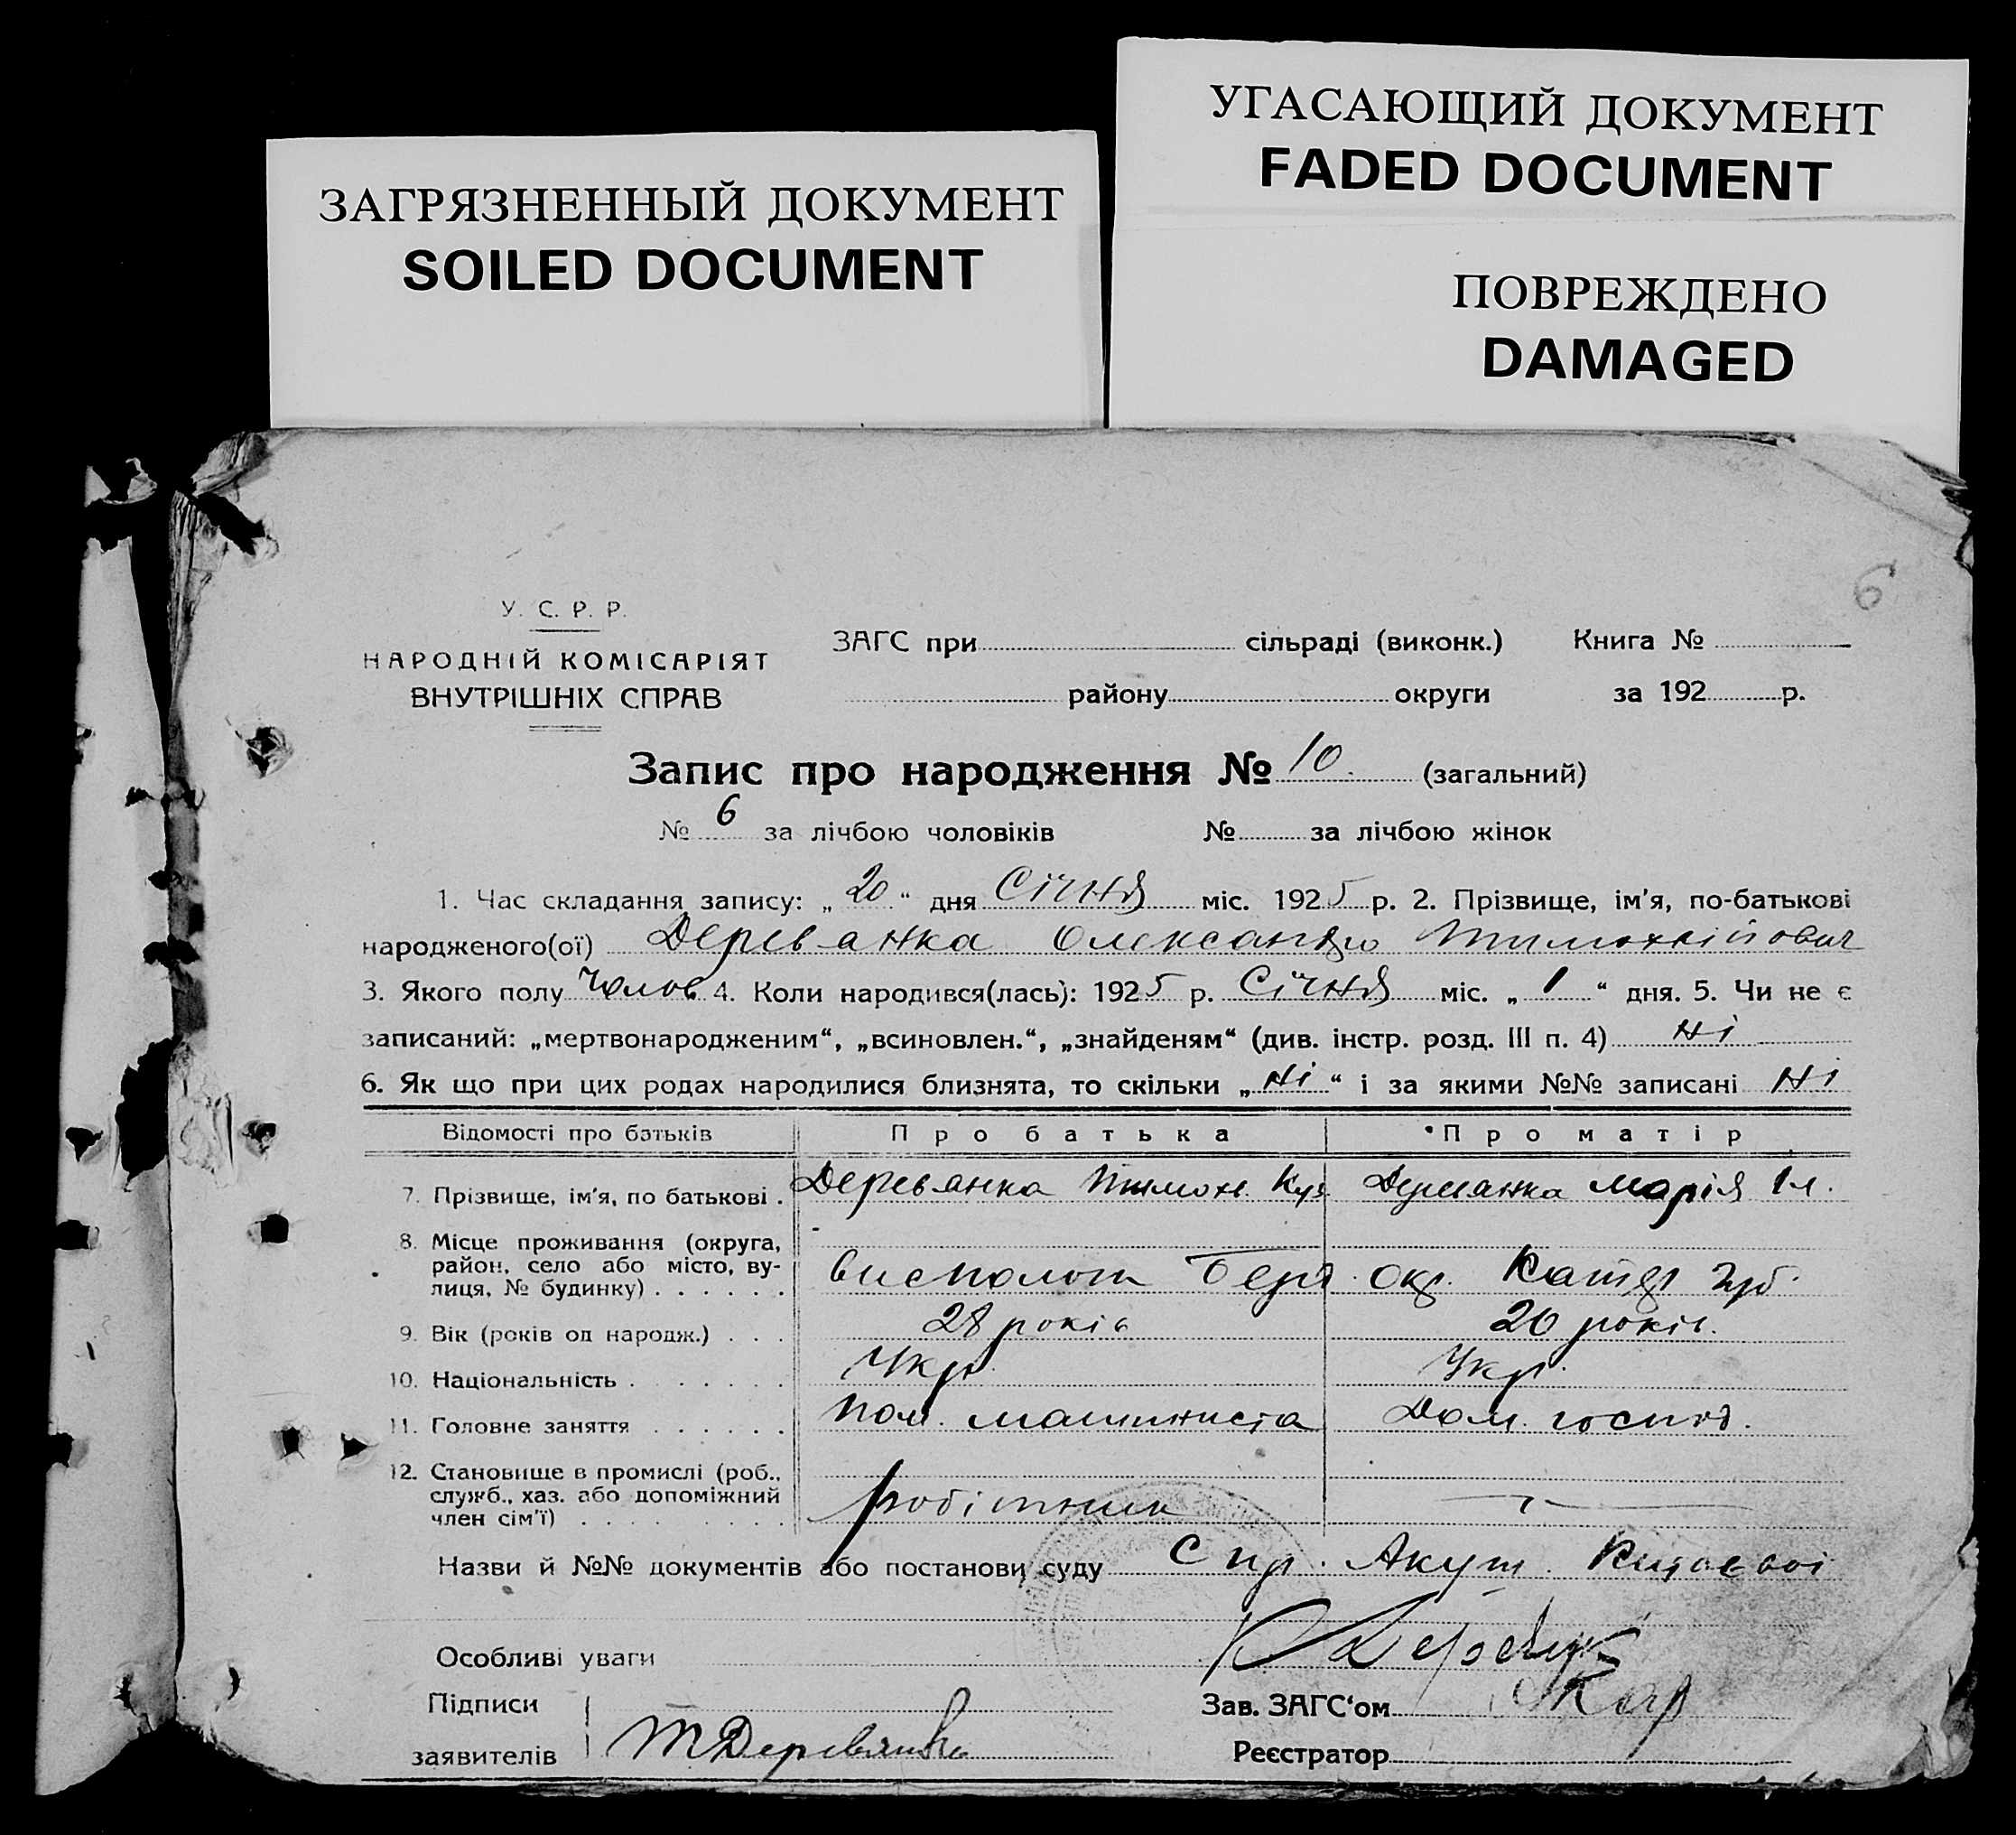 УГАСАЮЩИЙ ДОКУМЕНТ
FADED DOCUMENT
ЗАГРЯЗНЕННЫЙ ДОКУМЕНТ
SOILED DOCUMENT
ПОВРЕЖДЕНО
DAMAGED
6
У. С. Р. Р.
НАРОДНІЙ КОМІСАРІЯТ
ВНУТРІШНІХ СПРАВ
ЗАГС при сільраді (виконк.) Книга №
району округи за 192 р.
Запис про народження № 10. (загальний)
№ 6 за лічбою чоловіків № за лічбою жінок
1. Час складання запису: „ 20 “ дня Січня міс. 1925 р. 2. Прізвище, ім'я, по-батькові
народженого(ої) Деревянка Олександр Тимохвійович
3. Якого полу Чолов 4. Коли народився(лась): 1925 р. Січня міс. „ 1 “ дня. 5. Чи не є
записаний: „мертвонародженим“, „всиновлен.“, „знайденям“ (див. інстр. розд. III п. 4) ні
6. Як що при цих родах народилися близнята, то скільки „ ні “ і за якими №№ записані ні
Відомості про батьків Про батька Про матір
7. Прізвище, ім'я, по батькові . Деревянка Тимох. Куз. Деревянка Марія Іл.
8. Місце проживання (округа,
район, село або місто, ву-
лиця, № будинку) . . . . . . окр. Катер губ.
9. Вік (років од народж.) . . . 28 років 26 років.
10. Національність . . . . . . Укр. Укр.
11. Головне заняття . . . . . . Пом. машиниста Дом. господ.
12. Становище в промислі (роб.,
служб., хаз. або допоміжний
член сім'ї) . . . . . . . . . робітник
Назви й №№ документів або постанови суду Спр. Акуш.
Особливі уваги
Підписи Зав. ЗАГС‘ом
заявителів ТДеревянко Реєстратор